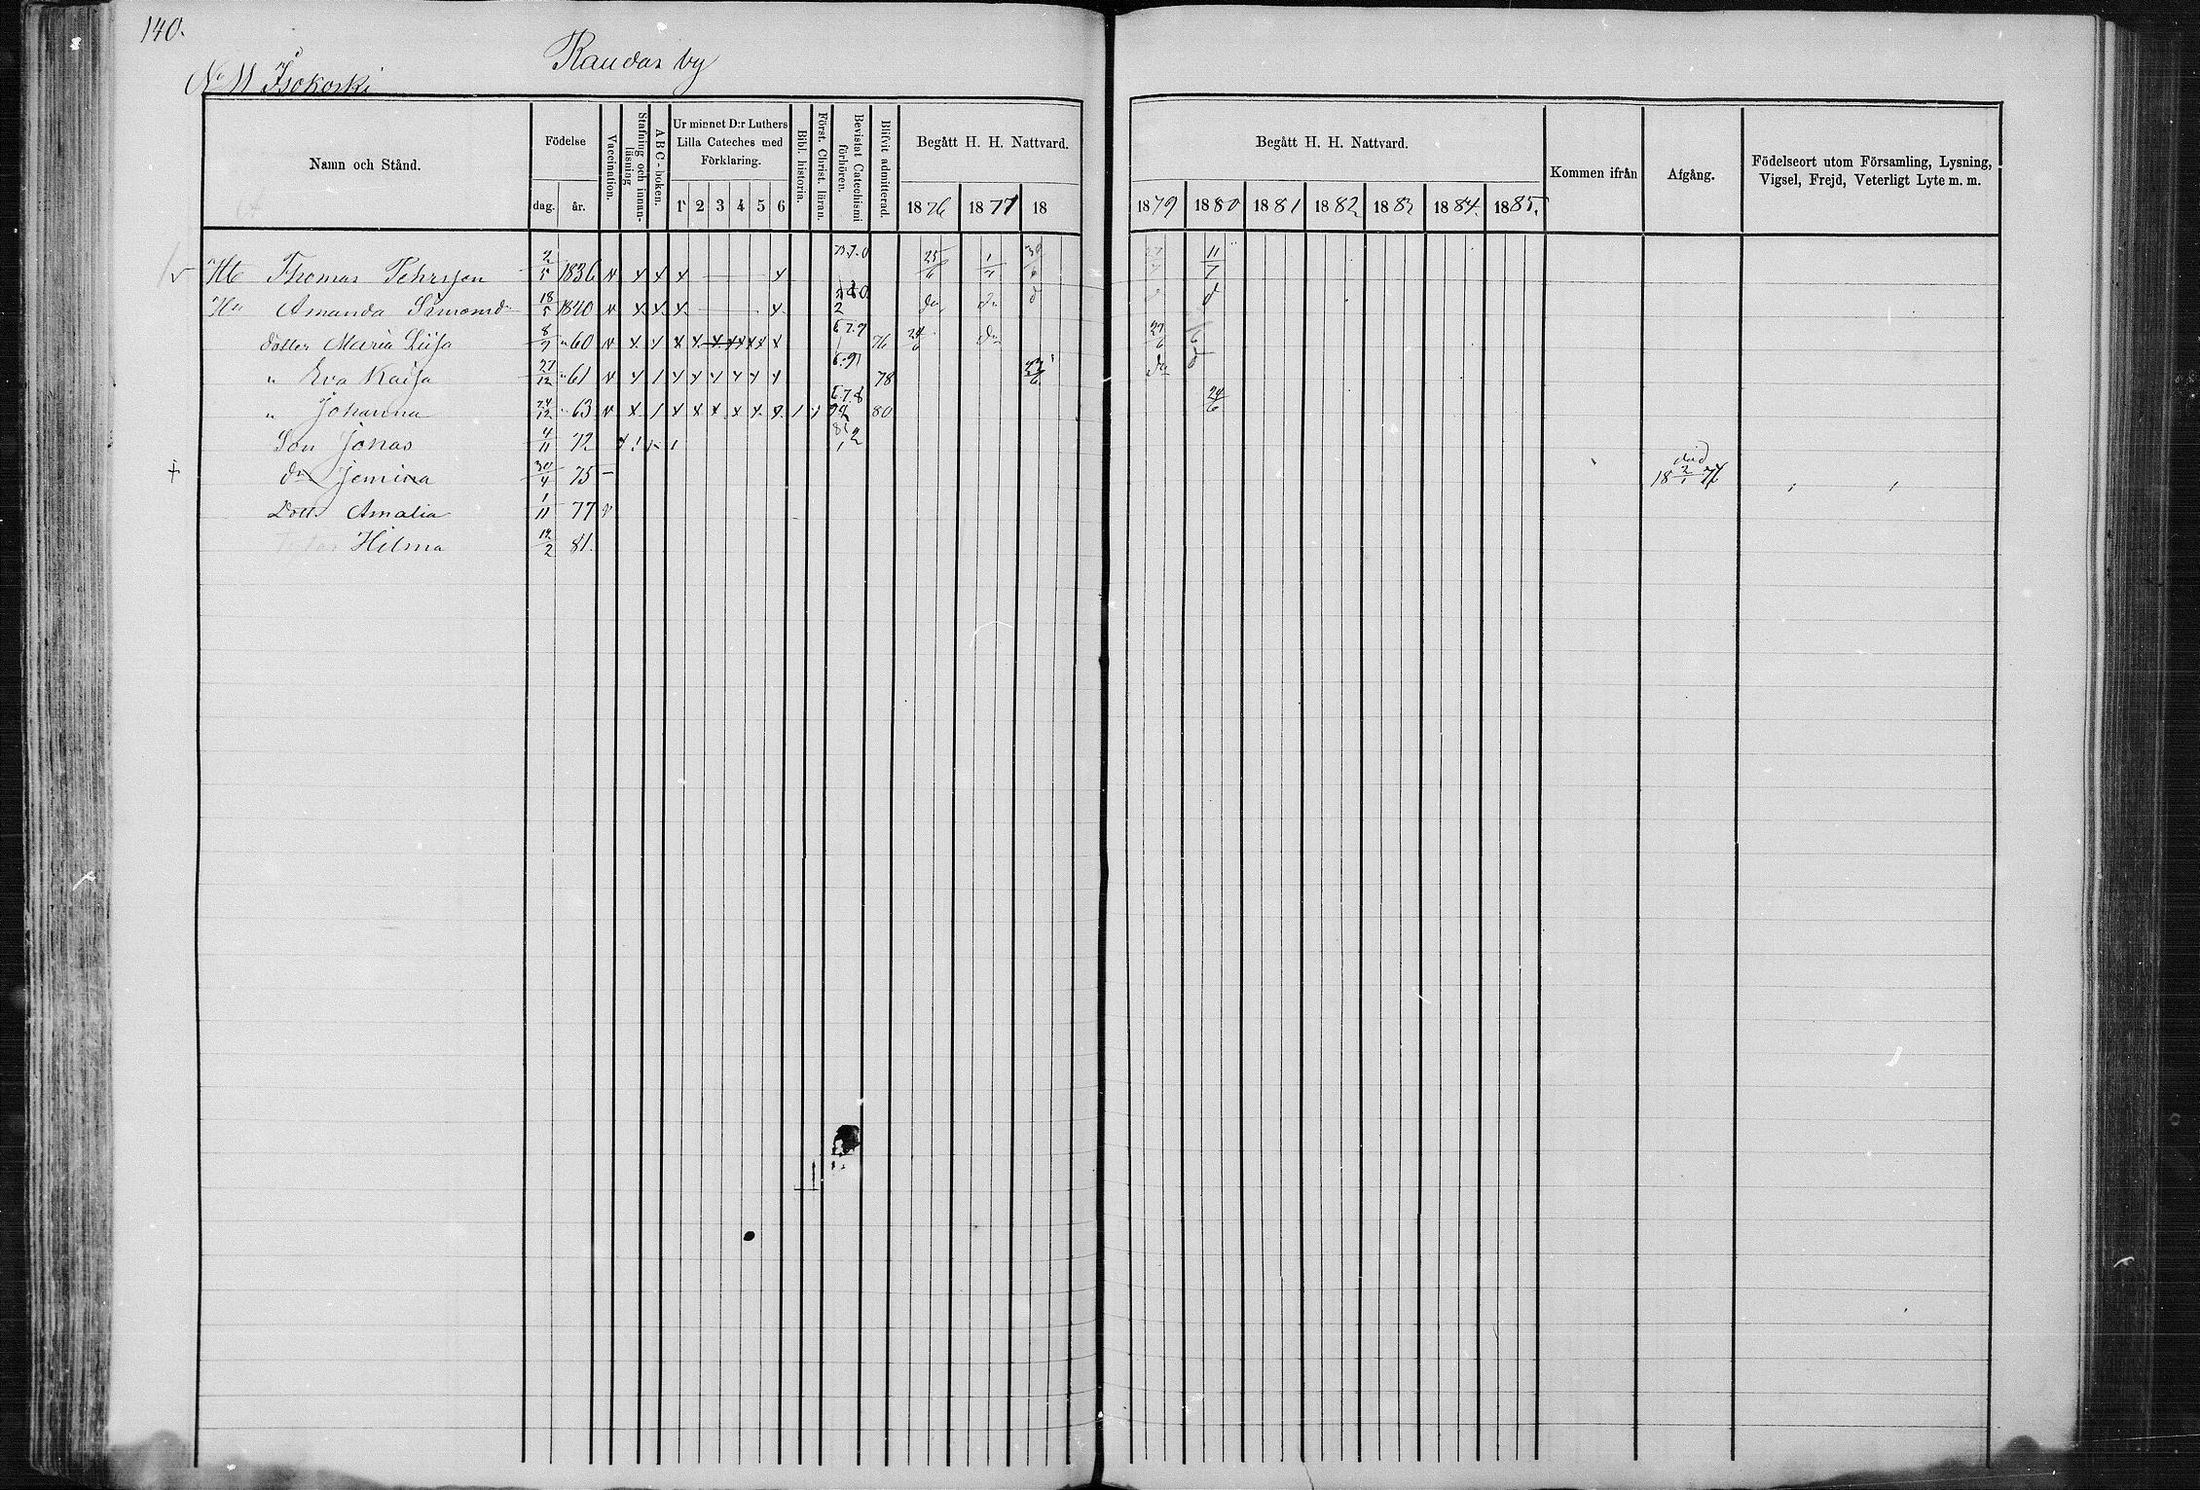 140.
Raudas by
No 11 Isokoski
Namn och Stånd.
Födelse
dag. år.
Vaccination.
Stafning och innanläsning
A B C-boken.
Ur minnet D:r Luthers Lilla Cateches med Förklaring.
1 2 3 4 5 6
Bibl. historia.
Först. Christ. läran.
Bevistat Catechismi förhören.
Blifvit admitterad.
Begått H. H. Nattvard.
1876 1877 18
Begått H. H. Nattvard.
1879 1880 1881 1882 1883 1884 1885.
Kommen ifrån
Afgång.
Födelseort utom Församling, Lysning, Vigsel, Frejd, Veterligt Lyte m. m.
Thomas Pehrsson 2/5 1836 v x x x x 25/6 1/7 30/6 11/7
Amanda Simonsd 18/5 1840 v x x x x do do
dotter Maria Liisa 8/7 60 v x x x x x x x x 76 24/6 do 27/6
" Eva Kaisa 27/12 61 v x 1 x x x x x x 78 23/6 do
" Johanna 24/12 63 v x 1 x x x x x x 80 24/6
Son Jonas 4/11 72
+ do Jemina 30/4 75 – död 18 2/1 77
Dott Amalia 1/11 77 v
Hilma 14/2 81.